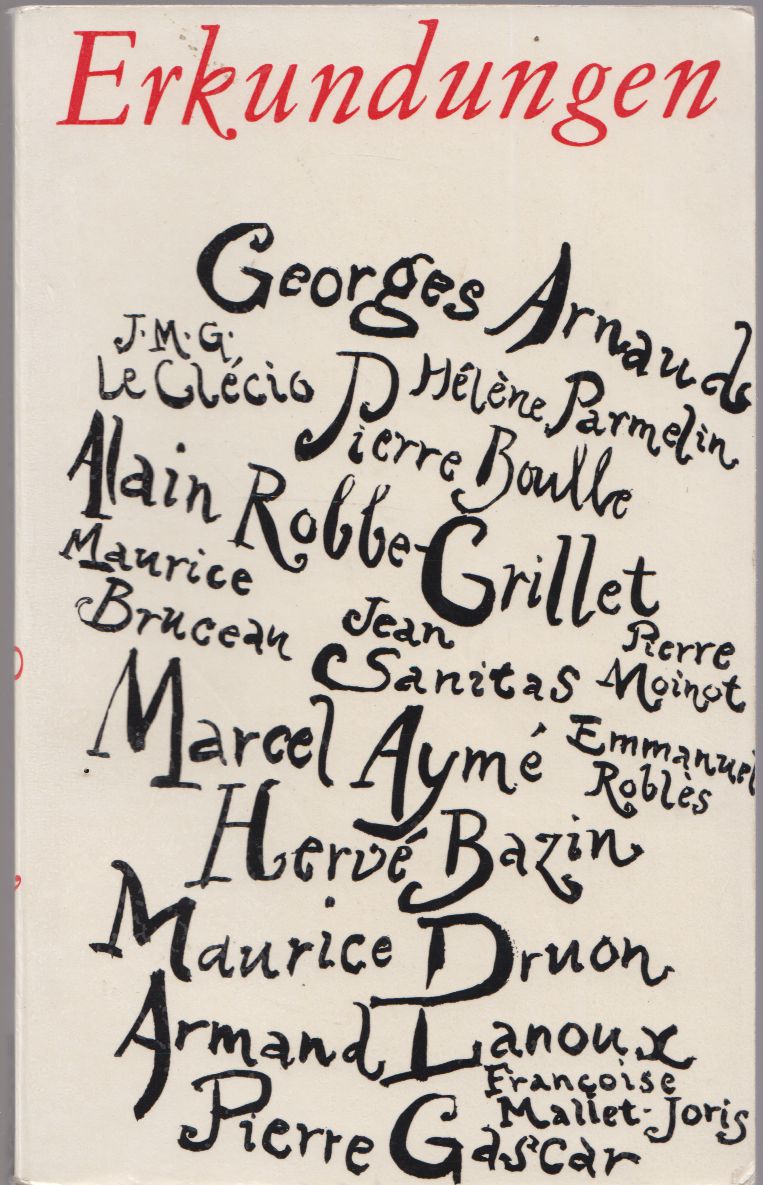 Erkundungen
Georges Arnaud
J.M.G.
Le Clécio
Hélène Parmelin
Pierre Boulle
Alain Robbe-Grillet
Maurice
Bruceau
Jean
Sanitas
Pierre
Moinot
Marcel Aymé
Emmanuel
Roblès
Hervé Bazin
Maurice Druon
Armand Lanoux
Françoise
Mallet-Joris
Pierre Gascar